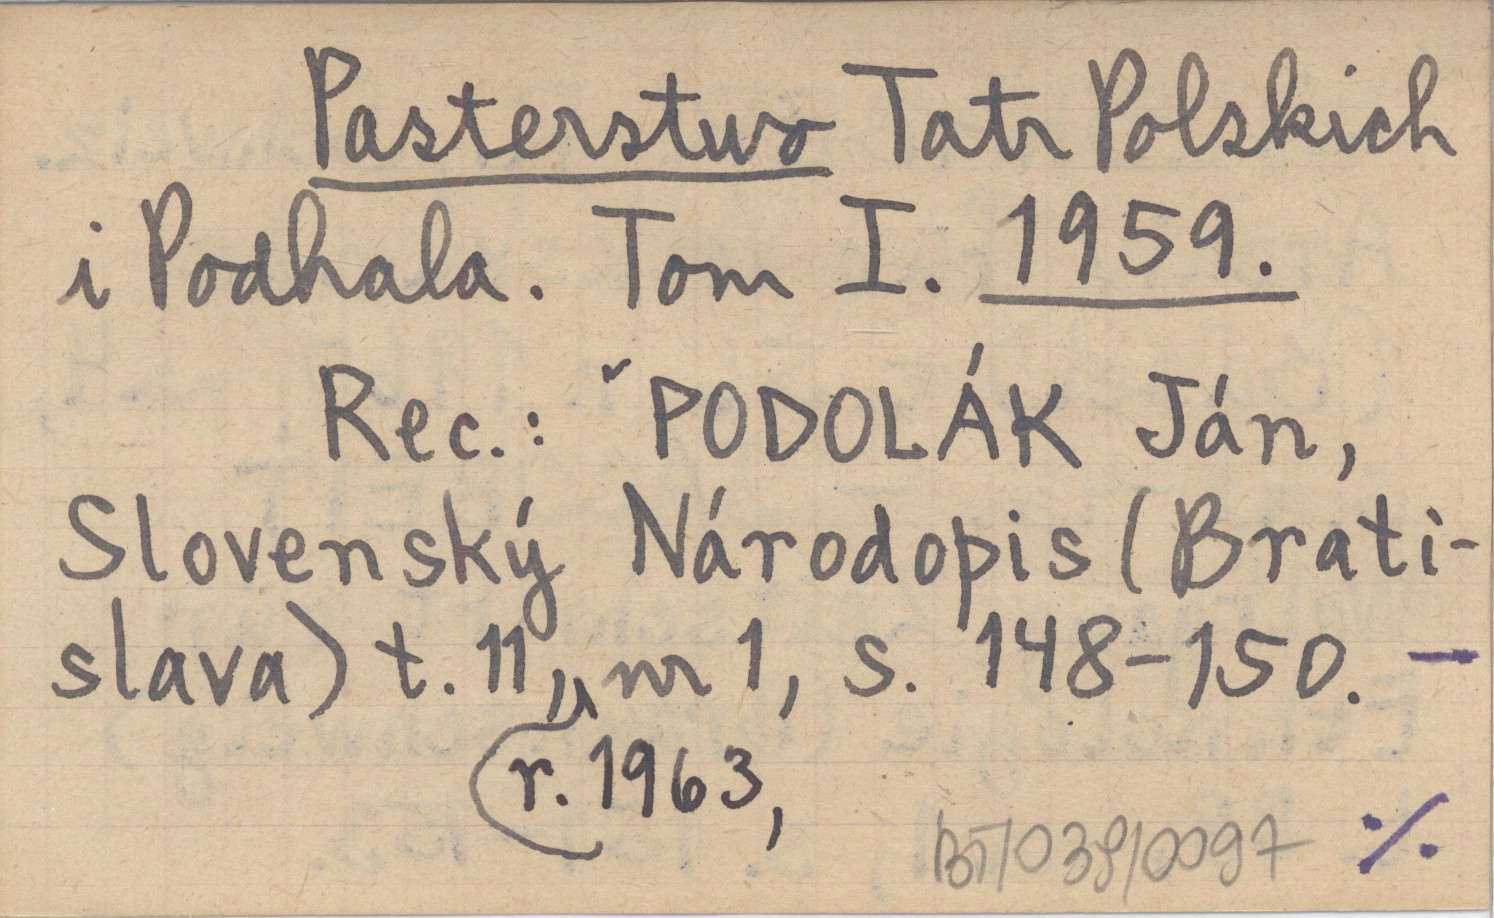 Pasterstwo Tatr Polskich
i Podhala. Tom I. 1959.
Rec.: ˇPODOLÁK Ján,
Slovenský Národopis (Brati-
slava) t. 11, nr 1, s. 148-150. -
r. 1963,
BT/039/0097 ·/.